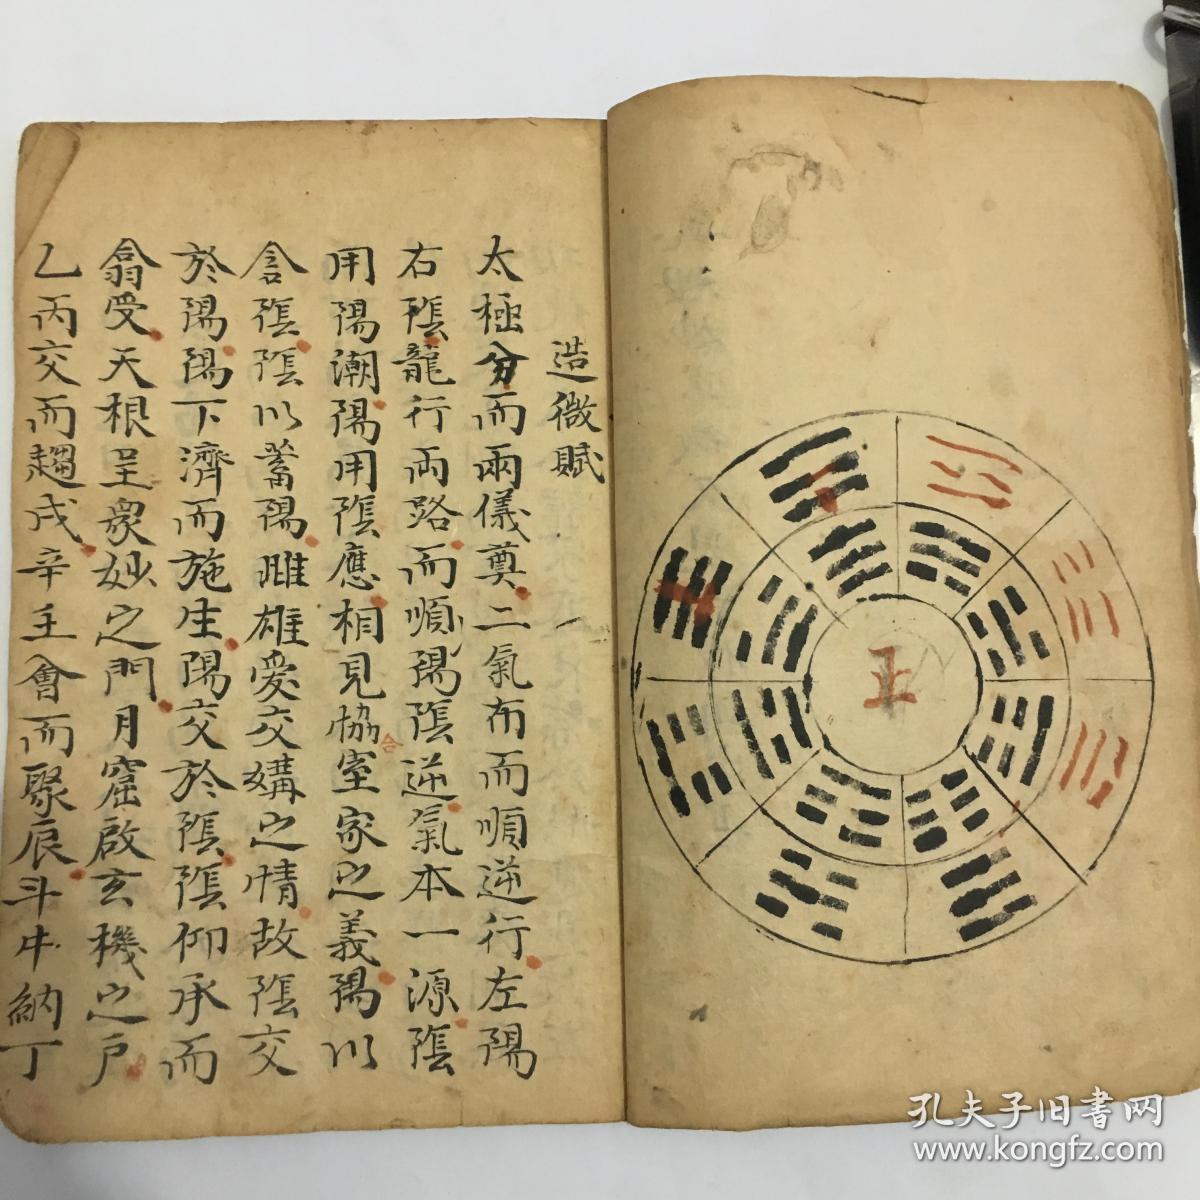 正
造微賦
太極分而兩儀奠二氣布而順逆行左陽
右陰龍行両路而順陽陰逆氣本一源陰
用陽潮陽用陰應相見協室家之義陽以
合
含陰陰以蓄陽雌雄愛交媾之情故陰交
於陽陽下濟而施生陽交於陰陰仰承而
翕受天根呈衆妙之門月窟啟玄機之戶
乙丙交而趨戌辛壬會而聚辰斗牛納丁
孔夫子旧書网
www.kongfz.com